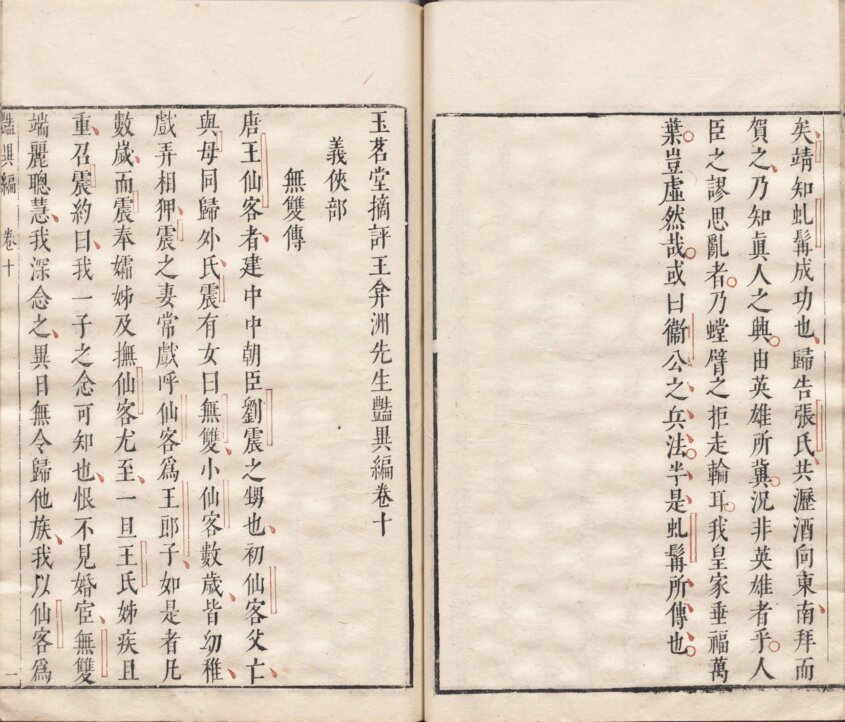 矣靖知虬髯成功也歸告張氏共瀝酒向東南拜而
賀之乃知眞人之興由英雄所冀況非英雄者乎人
臣之謬思亂者乃螳臂之拒走輪耳我皇家垂福萬
葉豈虛然哉或曰衞公之兵法半是虬髯所傳也
玉茗堂摘評王弇洲先生豔異編卷十
義俠部
無雙傳
唐王仙客者建中中朝臣劉震之甥也初仙客父亡
與母同歸外氏震有女曰無雙小仙客數歲皆幼稚
戲弄相狎震之妻常戲呼仙客爲王郎子如是者凡
數歲而震奉孀姊及撫仙客尤至一旦王氏姊疾且
重召震約曰我一子之念可知也恨不見婚宦無雙
端麗聰慧我深念之異日無令歸他族我以仙客爲
豔異編 卷十 一